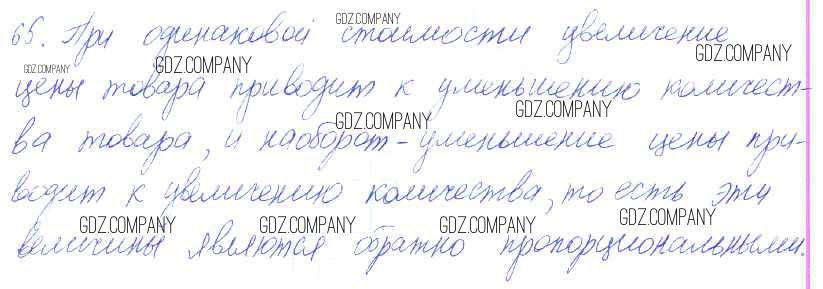 65. При одинаковой стоимости увеличение
цены товара приводит к уменьшению количест-
ва товара, и наоборот - уменьшение цены при-
водит к увеличению количества, то есть эти
величины являются обратно пропорциональными.
GDZ.COMPANY
GDZ.COMPANY
GDZ.COMPANY
GDZ.COMPANY
GDZ.COMPANY
GDZ.COMPANY
GDZ.COMPANY
GDZ.COMPANY
GDZ.COMPANY
GDZ.COMPANY